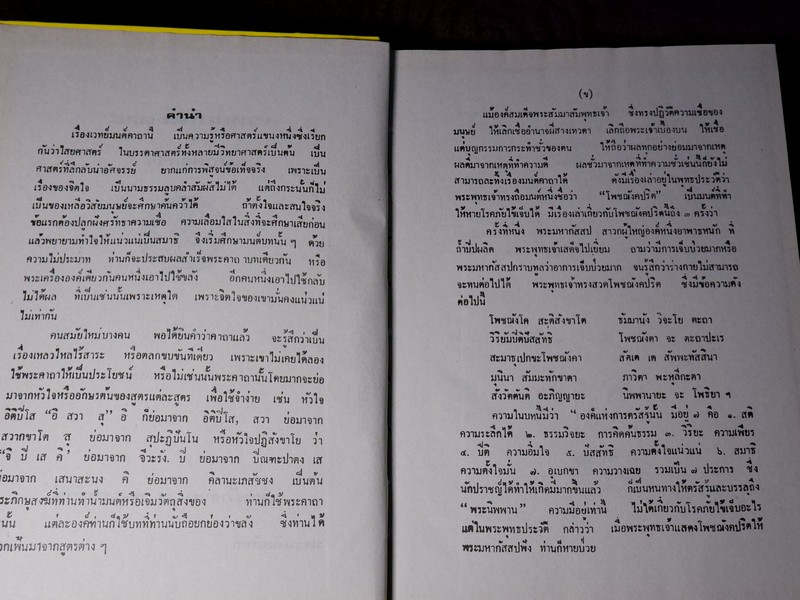 คำนำ
เรื่องเวทย์มนต์คาถานี้ เป็นความรู้หรือศาสตร์แขนงหนึ่งซึ่งเรียก
กันว่าไสยศาสตร์ ในบรรดาศาสตร์ทั้งหลายมีวิทยาศาสตร์เป็นต้น เป็น
ศาสตร์ที่ลึกลับน่าอัศจรรย์ ยากแก่การพิสูจน์ข้อเท็จจริง เพราะเป็น
เรื่องของจิตใจ เป็นนามธรรมลูบคลำสัมผัสไม่ได้ แต่ถึงกระนั้นก็ไม่
เป็นของเหลือวิสัยมนุษย์จะศึกษาค้นคว้าได้ ถ้าตั้งใจและสนใจจริง
ข้อแรกต้องปลูกฝังศรัทธาความเชื่อ ความเลื่อมใสในสิ่งที่จะศึกษาเสียก่อน
แล้วพยายามทำใจให้แน่วแน่เป็นสมาธิ จึงเริ่มศึกษามนต์บทนั้น ๆ ด้วย
ความไม่ประมาท ท่านก็จะประสบผลสำเร็จพระคาถาบทเดียวกัน หรือ
พระเครื่ององค์เดียวกันคนหนึ่งเอาไปใช้ขลัง อีกคนหนึ่งเอาไปใช้กลับ
ไม่ได้ผล ที่เป็นเช่นนั้นเพราะเหตุใด เพราะจิตใจของเขามั่นคงแน่วแน่
ไม่เท่ากัน
คนสมัยใหม่บางคน พอได้ยินคำว่าคาถาแล้ว จะรู้สึกว่าเป็น
เรื่องเหลวไหลไร้สาระ หรือตลกขบขันทีเดียว เพราะเขาไม่เคยได้ลอง
ใช้พระคาถาให้เป็นประโยชน์ หรือไม่เช่นนั้นพระคาถานั้นโดยมากจะย่อ
มาจากหัวใจหรืออักษรต้นของสูตรแต่ละสูตร เพื่อใช้จำง่าย เช่น หัวใจ
อิติปิโส "อิ สวา สุ" อิ ก็ย่อมาจาก อิติปิโส, สวา ย่อมาจาก
สวากขาโต สุ ย่อมาจาก สุปะฏิปันโน หรือหัวใจปฏิสังขาโย ว่า
"จิ ปิ เส คิ" ย่อมาจาก จีวะรัง. ปิ ย่อมาจาก ปิณฑะปาตะ เส
ย่อมาจาก เสนาสะนะ คิ ย่อมาจาก คิลานะเภสัชชะ เป็นต้น
พระภิกษุสงฆ์ที่ท่านทำน้ำมนต์หรือเจิมวัตถุสิ่งของ ท่านก็ใช้พระคาถา
นั้น แต่ละองค์ท่านก็ใช้บทที่ท่านนับถือยกย่องว่าขลัง ซึ่งท่านได้
เฟ้นมาจากสูตรต่าง ๆ
(ข)
แม้องค์สมเด็จพระสัมมาสัมพุทธเจ้า ซึ่งทรงปฏิวัติความเชื่อของ
มนุษย์ ให้เลิกเชื่ออำนาจผีสางเทวดา เลิกถือพระเจ้าเบื้องบน ให้เชื่อ
แต่บุญกรรมการกระทำชั่วของคน ให้ถือว่าผลทุกอย่างย่อมมาจากเหตุ
ผลดีมาจากเหตุที่ทำความดี ผลชั่วมาจากเหตุที่ทำความชั่วเช่นนี้ก็ยังไม่
สามารถละทิ้งเรื่องมนต์คาถาได้ ดังมีเรื่องเล่าอยู่ในพุทธประวัติว่า
พระพุทธเจ้าทรงถือมนต์หนึ่งชื่อว่า "โพชฌังคปริต" เป็นมนต์ที่ทำ
ให้หายโรคภัยไข้เจ็บได้ มีเรื่องเล่าเกี่ยวกับโพชฌังคปริตนี้ถึง ๓ ครั้งว่า
ครั้งที่หนึ่ง พระมหากัสสป สาวกผู้ใหญ่องค์หนึ่งอาพาธหนัก ที่
ถ้ำปิปผลิต พระพุทธเจ้าเสด็จไปเยี่ยม ถามว่ามีการเจ็บป่วยมากหรือ
พระมหากัสสปกราบทูลว่าอาการเจ็บป่วยมาก จนรู้สึกว่าร่างกายไม่สามารถ
จะทนต่อไปได้ พระพุทธเจ้าทรงสวดโพชฌังคปริต ซึ่งมีข้อความดัง
ต่อไปนี้
โพชฌังโค สะติสังขาโต ธัมมานัง วิจะโย ตะถา
วิริยัมปิติปัสสัทธิ โพชฌังคา จะ ตะถาปะเร
สะมาธุเปกขะโพชฌังคา สัตเต เต สัพพะทัสสินา
มุนินา สัมมะทักขาตา ภาวิตา พะหุลีกะตา
สังวัตตันติ อะภิญญายะ นิพพานายะ จะ โพธิยา ฯ
ความในบทนี้มีว่า "องค์แห่งการตรัสรู้นั้น มีอยู่ ๗ คือ ๑. สติ
ความระลึกได้ ๒. ธรรมวิจยะ การคิดค้นธรรม ๓. วิริยะ ความเพียร
๔. ปีติ ความอิ่มใจ ๕. ปัสสัทธิ ความตั้งใจแน่วแน่ ๖. สมาธิ
ความตั้งใจมั่น ๗. อุเบกขา ความวางเฉย รวมเป็น ๗ ประการ ซึ่ง
นักปราชญ์ได้ทำให้เกิดมีมากขึ้นแล้ว ก็เป็นหนทางให้ตรัสรู้และบรรลุถึง
"พระนิพพาน" ความมีอยู่เท่านี้ ไม่ได้เกี่ยวกับโรคภัยไข้เจ็บอะไร
แต่ในพระพุทธประวัติ กล่าวว่า เมื่อพระพุทธเจ้าแสดงโพชฌังคปริตให้
พระมหากัสสปฟัง ท่านก็หายป่วย